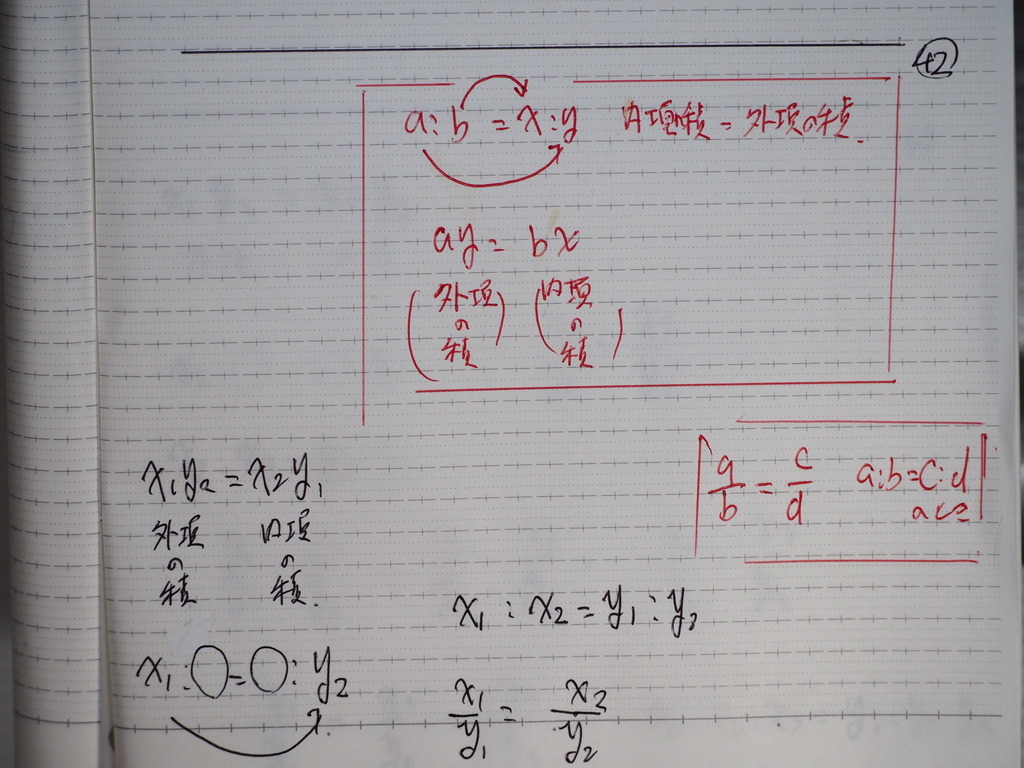 42
a:b = x:y 内項の積 = 外項の積.
ay = bx
(外項の積) (内項の積)
a/b = c/d a:b=c:d
x₁y₂ = x₂y₁
外項の積 内項の積.
x₁ : x₂ = y₁ : y₂
x₁:○=○:y₂
x₁/y₁ = x₂/y₂